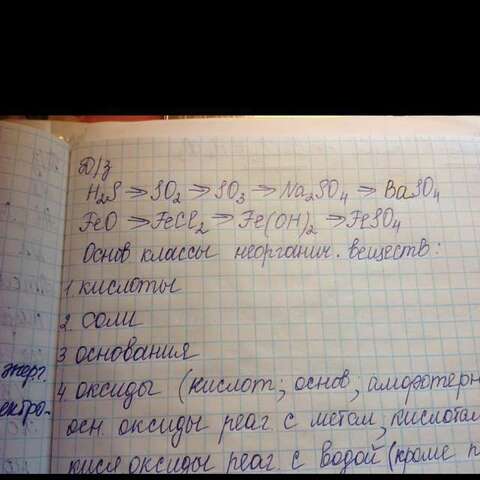 Д/з
H₂S → SO₂ → SO₃ → Na₂SO₄ → BaSO₄
FeO → FeCl₂ → Fe(OH)₂ → FeSO₄
Основ классы неорганич. веществ:
1. кислоты
2. соли
3 основания
4 оксиды (кислот; основ, амфотерн
осн. оксиды реаг. с метал; кислотам
кисл оксиды реаг. с водой (кроме
энерг.
ектро-